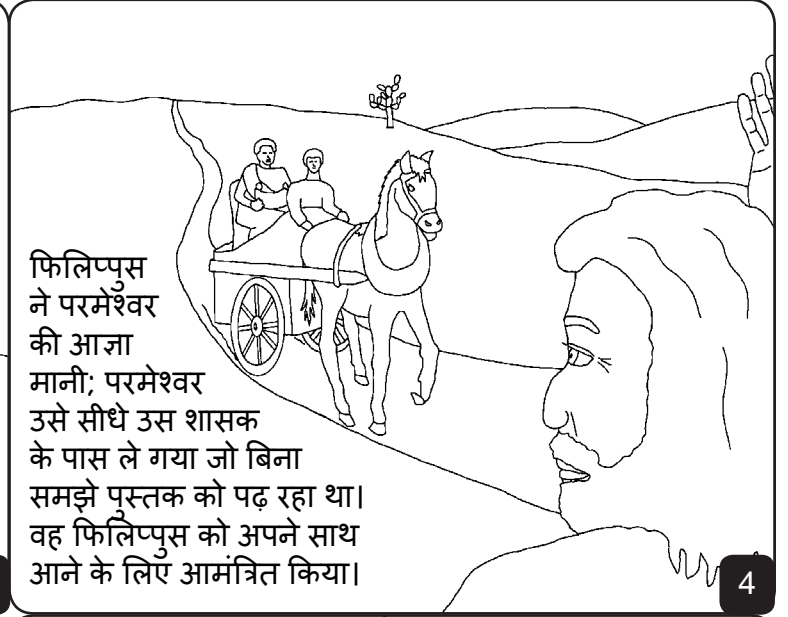 फिलिप्पुस
ने परमेश्वर
की आज्ञा
मानी; परमेश्वर
उसे सीधे उस शासक
के पास ले गया जो बिना
समझे पुस्तक को पढ़ रहा था।
वह फिलिप्पुस को अपने साथ
आने के लिए आमंत्रित किया।
4